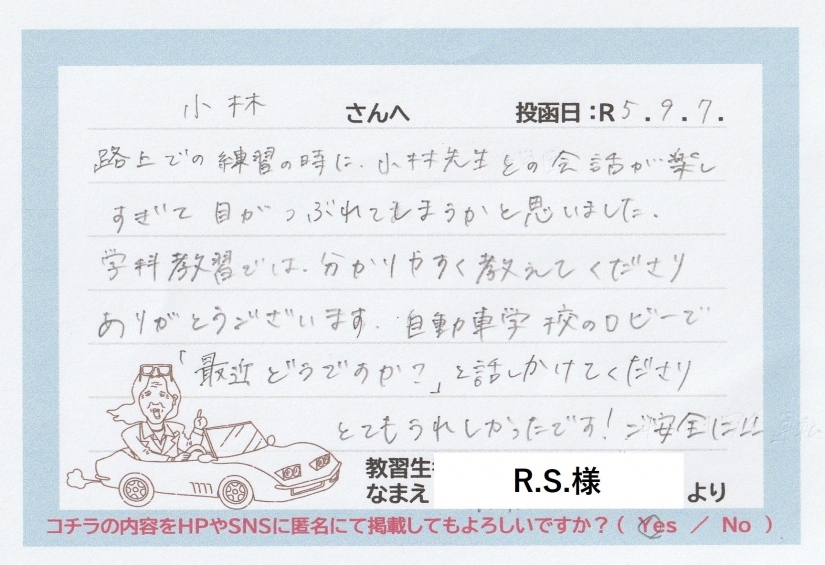 小林 さんへ 投函日:R5.9.7.
路上での練習の時に、小林先生との会話が楽し
すぎて目がつぶれてしまうかと思いました。
学科教習では、分かりやすく教えてくださり
ありがとうございます。自動車学校のロビーで
「最近どうですか?」と話しかけてくださり
とてもうれしかったです!ご安全に!!
教習生
なまえ R.S.様 より
コチラの内容をHPやSNSに匿名にて掲載してもよろしいですか?( Yes / No )